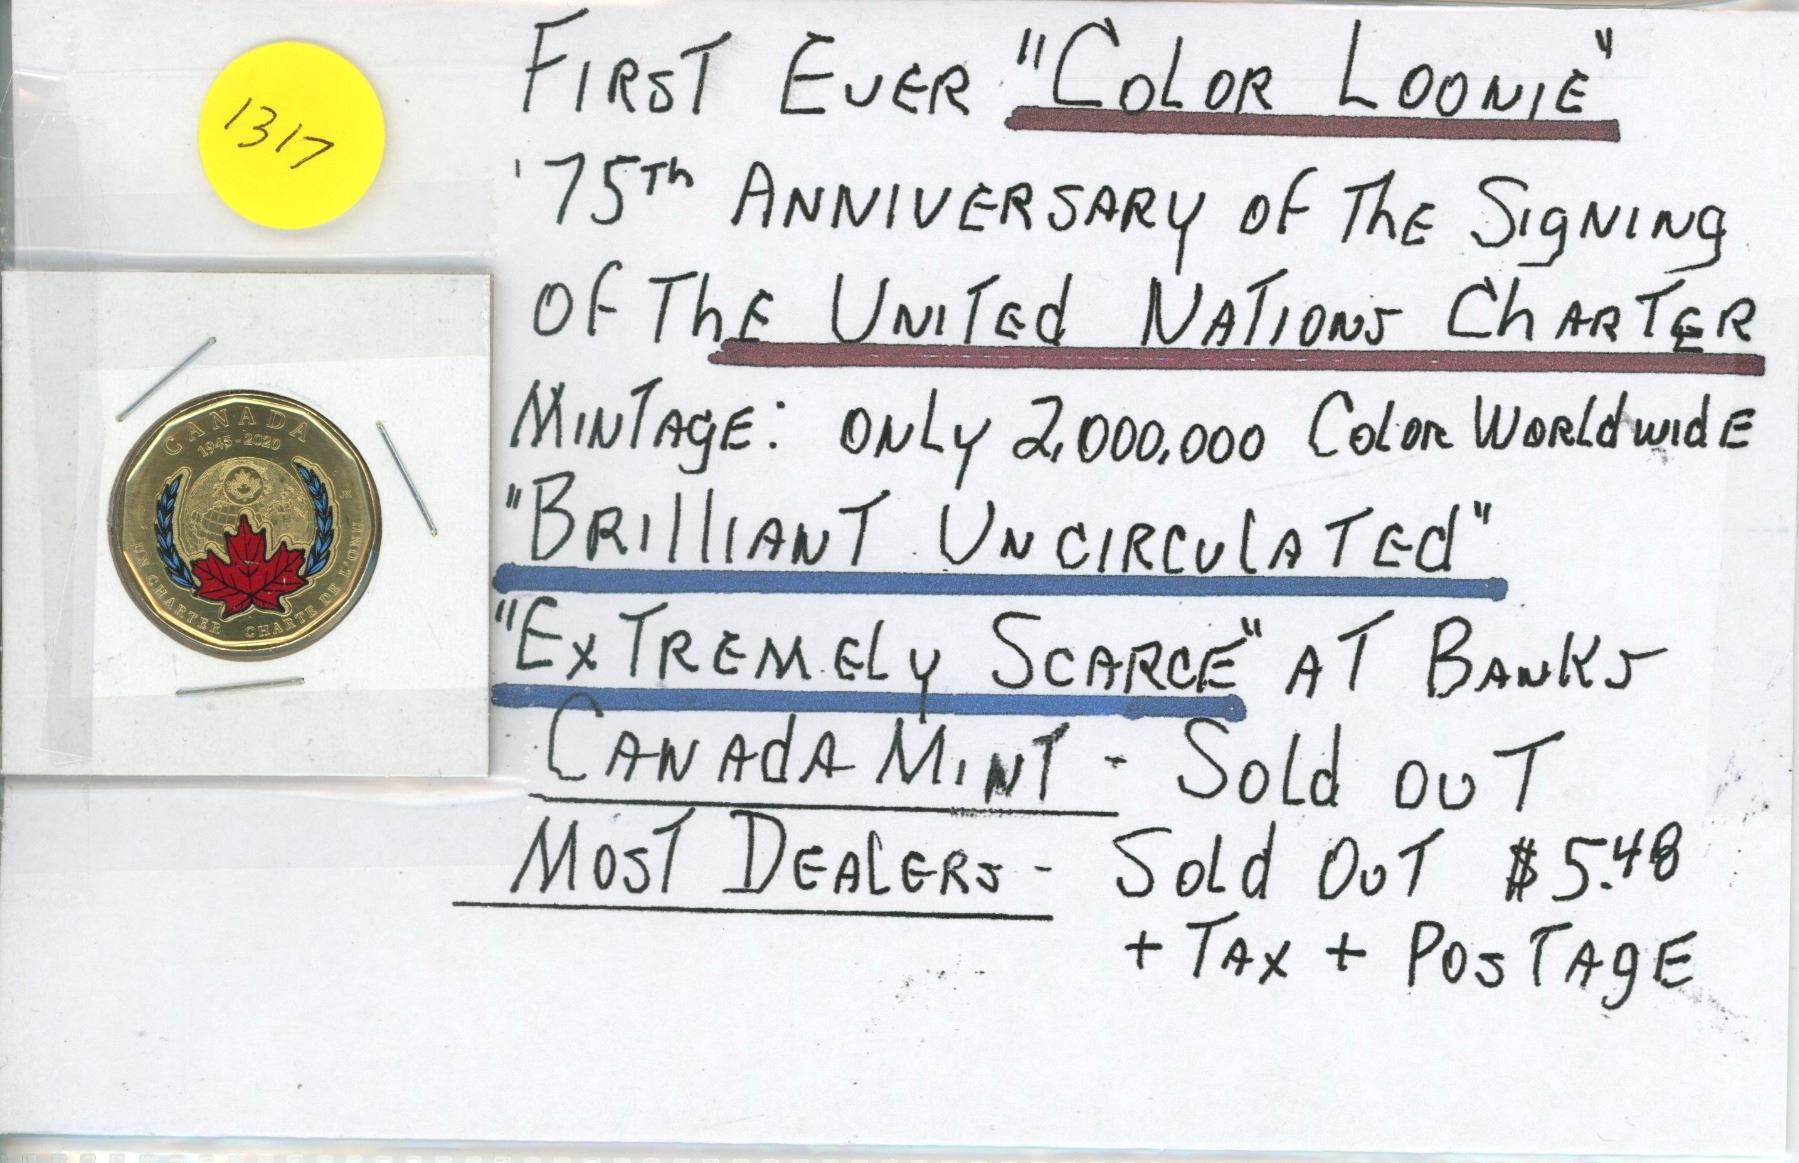 1317
FIRST EVER "COLOR LOONIE"
'75Th ANNIVERSARY OF THE SIGNING
OF THE UNITED NATIONS CHARTER
MINTAGE: ONLY 2,000,000 COLOR WORLDWIDE
"BRILLIANT UNCIRCULATED"
"EXTREMELY SCARCE" AT BANKS
CANADA MINT - SOLD OUT
MOST DEALERS - SOLD OUT $5.48
+ TAX + POSTAGE
CANADA
1945-2020
JK
UN CHARTER CHARTE DE L'ONU